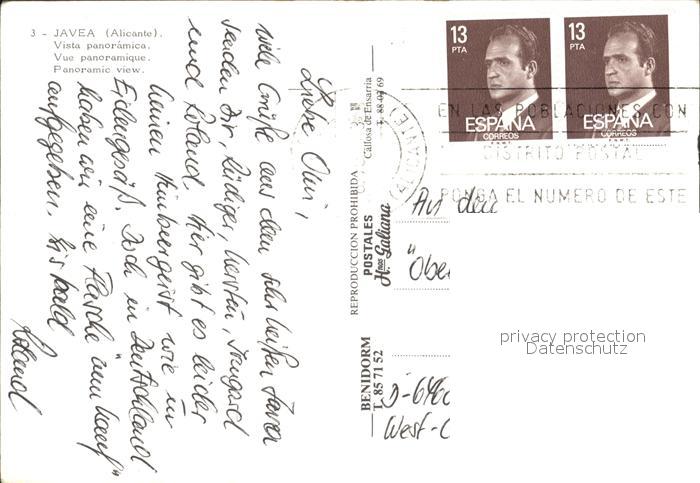 3 - JAVEA (Alicante).
Vista panorámica.
Vue panoramique.
Panoramic view.
Liebe Omi,
viele Grüße aus dem sehr heißen Javea
senden Dir, Rüdiger, Kersten, Irmgard
und Roland. Hier gibt es leider
keinen Himbeergeist wie in
Doch in Deutschland
haben wir eine Flasche
aufgegeben. Bis bald
Roland
REPRODUCCION PROHIBIDA
POSTALES
Hnos Galiana
Callosa de Ensarria
T. 88 04 69
BENIDORM
T. 85 71 52
13
PTA
ESPAÑA
CORREOS
13
PTA
ESPAÑA
CORREOS
(ALICANTE)
EN LAS POBLACIONES CON
DISTRITO POSTAL
PONGA EL NUMERO DE ESTE
An den
"Ober
West-
privacy protection
Datenschutz